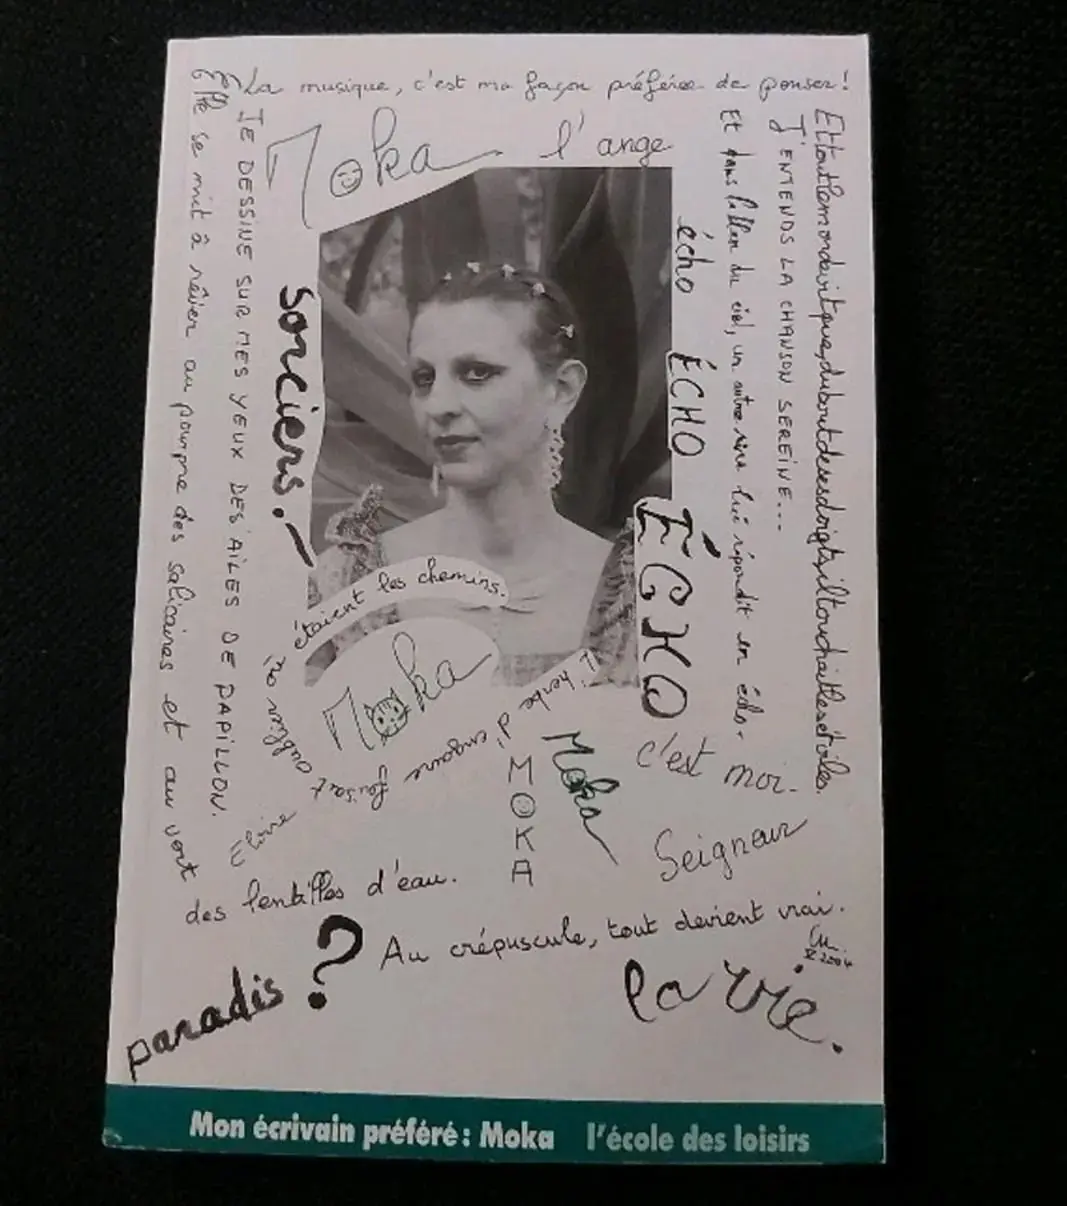 La musique, c'est ma façon préférée de penser!
Moka
l'ange
Elle se mit à rêver au pourpre des salicaires et au vert
des lentilles d'eau.
JE DESSINE SUR MES YEUX DES AILES DE PAPILLON.
sorciers!
écho
ÉCHO
ÉCHO
c'est moi.
Et dans le bleu du ciel, un autre rire lui répondit en écho.
J'ENTENDS LA CHANSON SEREINE...
Ettoutlemondevitque,duboutdesesdoigts,iltouchaitlesétoiles.
étaient les chemins.
Moka
L'herbe d'engane faisait oublier où
MOKA
Moka
Seigneur
Au crépuscule, tout devient vrai.
X 2004
paradis ?
la vie.
Mon écrivain préféré : Moka l'école des loisirs